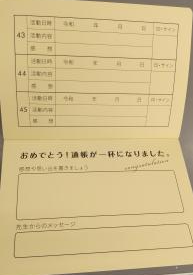 43 活動日時 令和 年 月 日 印・サイン
活動内容
感想
44 活動日時 令和 年 月 日 印・サイン
活動内容
感想
45 活動日時 令和 年 月 日 印・サイン
活動内容
感想
おめでとう！通帳が一杯になりました。
congratulation
感想や思い出を書きましょう
先生からのメッセージ